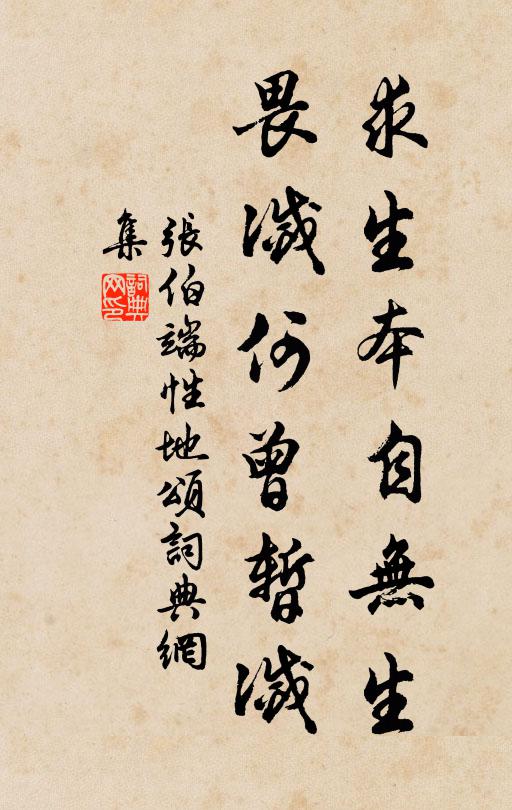 求生本自無生
畏滅何曾暫滅
張伯端性地頌詞典網
集
詞典
网印